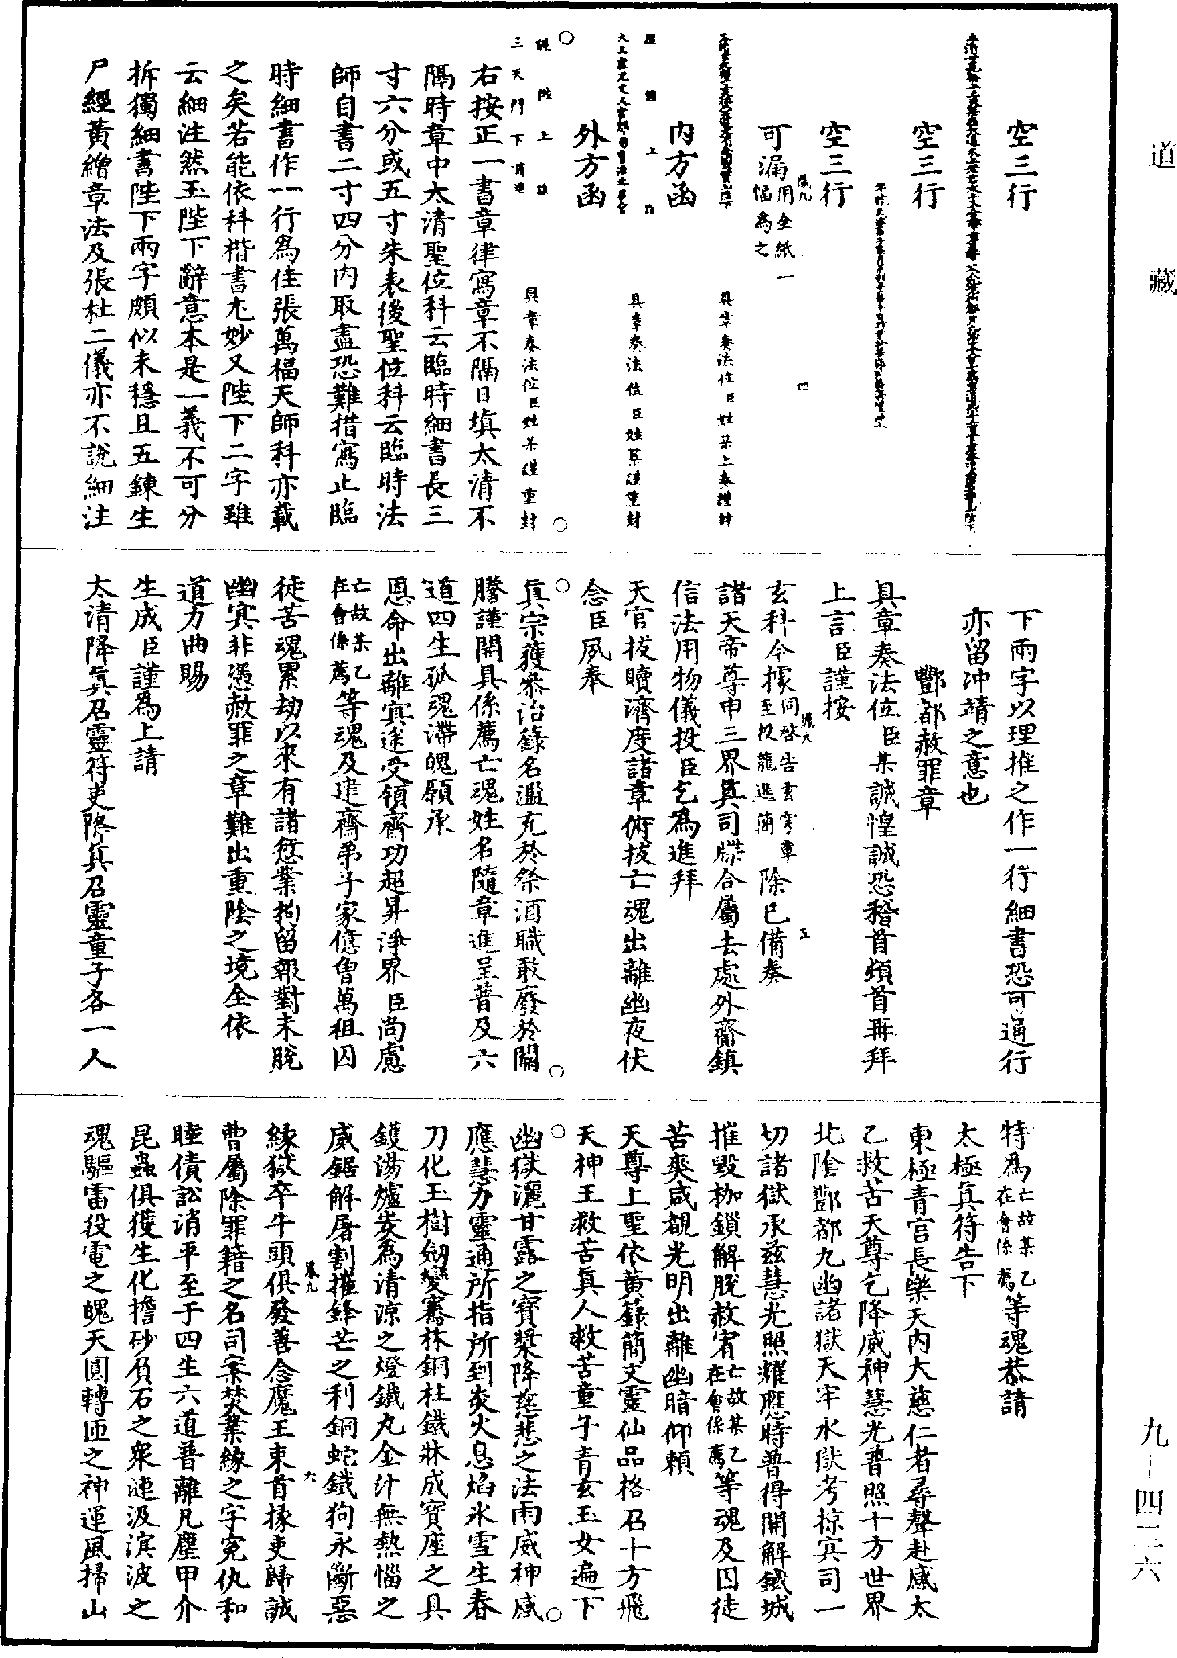 道藏
空三行
空三行
空三行
可漏用全紙一幅為之
內方函
具章奏法位臣姓某上奏謹封
具章奏法位臣姓某謹重封
外方函
三天門下請進
具章奏法位臣姓某謹重封
右按正一書章律寫章不隔日填太清不
隔時章中太清聖位科云臨時細書長三
寸六分或五寸朱表後聖位科云臨時法
師自書二寸四分內取盡恐難措寫止臨
時細書作一行為佳張萬福天師科亦載
之矣若能依科楷書尤妙又陛下二字雖
云細注然玉陛下辭意本是一義不可分
拆獨細書陛下兩字頗似未穩且五鍊生
尸經黃繒章法及張杜二儀亦不說細注
下兩字以理推之作一行細書恐可通行
亦留沖靖之意也
酆都赦罪章
具章奏法位臣某誠惶誠恐稽首頓首再拜
上言臣謹按
玄科今據同啓告玄穹章至投龍進簡除已備奏
諸天帝尊申三界真司牒合屬去處外齋鎮
信法用物儀投臣乞為進拜
天官拔贖濟度諸章俯拔亡魂出離幽夜伏
念臣夙奉
真宗獲叅治籙名濫充於祭酒職敢廢於關
騰謹開具係薦亡魂姓名隨章進呈普及六
道四生孤魂滯魄願承
恩命出離冥途受領齋功超昇淨界臣尚慮
亡故某乙在會係薦等魂及建齋弟子家億曾萬祖囚
徒苦魂累劫以來有諸愆業拘留報對未脫
幽冥非憑赦罪之章難出重陰之境全依
道力曲賜
生成臣謹為上請
太清降真召靈符吏降真召靈童子各一人
特為亡故某乙在會係薦等魂恭請
太極真符告下
東極青宮長樂天內大慈仁者尋聲赴感太
乙救苦天尊乞降威神慧光普照十方世界
北陰酆都九幽諸獄天牢水獄考掠冥司一
切諸獄承茲慧光照耀應時普得開解鐵城
摧毀枷鎖解脫赦宥亡故某乙在會係薦等魂及囚徒
苦爽咸覩光明出離幽暗仰賴
天尊上聖依黃籙簡文靈仙品格召十方飛
天神王救苦真人救苦童子青玄玉女遍下
幽獄灑甘露之寶漿降慈悲之法雨威神感
應慧力靈通所指所到炎火息焰氷雪生春
刀化玉樹劒變騫林銅柱鐵牀成寶座之具
鑊湯爐炭為清凉之燈鐵丸金汁無熱惱之
威鋸解屠割摧鋒芒之利銅蛇鐵狗永斷惡
緣獄卒牛頭俱發善念魔王束首掾吏歸誠
曹屬除罪籍之名司案焚業緣之字寃仇和
睦債訟消平至于四生六道普離凡塵甲介
昆蟲俱獲生化擔砂負石之衆漣汲溟波之
魂驅雷役電之魄天圓轉匝之神運風掃山
九－四二六